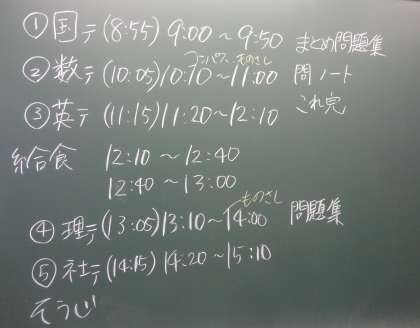 ①国テ(8:55) 9:00～9:50 まとめ問題集
コンパス ものさし
②数テ(10:05)10:10～11:00 問ノート
③英テ(11:15)11:20～12:10 これ完
給食 12:10～12:40
12:40～13:00
ものさし
④理テ(13:05)13:10～14:00 問題集
⑤社テ(14:15)14:20～15:10
そうじ